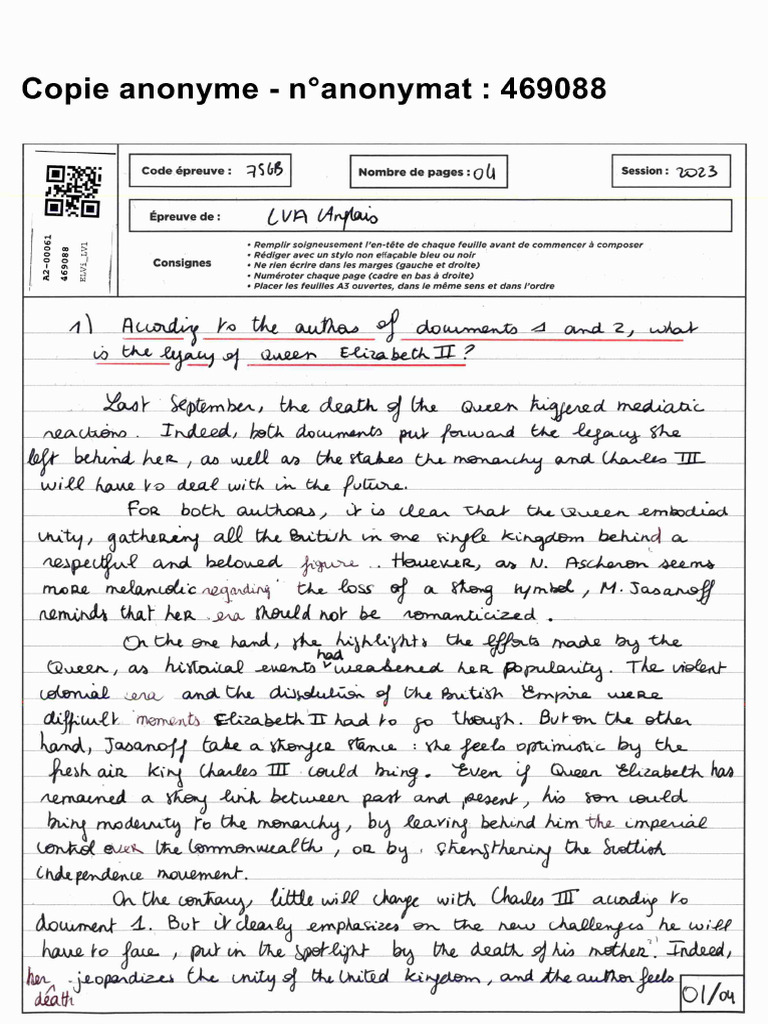 Copie anonyme - n°anonymat : 469088
A2-00061
469088
ELVi_LV1
Code épreuve : 7SGB
Nombre de pages : 04
Session : 2023
Épreuve de : LVA Anglais
Consignes
• Remplir soigneusement l'en-tête de chaque feuille avant de commencer à composer
• Rédiger avec un stylo non effaçable bleu ou noir
• Ne rien écrire dans les marges (gauche et droite)
• Numéroter chaque page (cadre en bas à droite)
• Placer les feuilles A3 ouvertes, dans le même sens et dans l'ordre
1) According to the authors of documents 1 and 2, what
is the legacy of Queen Elizabeth II ?
Last September, the death of the Queen triggered mediatic
reactions. Indeed, both documents put forward the legacy she
left behind her, as well as the stakes the monarchy and Charles III
will have to deal with in the future.
For both authors, it is clear that the Queen embodied
unity, gathering all the British in one single kingdom behind a
respectful and beloved figure. However, as N. Ascheron seems
more melancolic regarding the loss of a strong symbol, M. Jasanoff
reminds that her era should not be romanticized.
On the one hand, she highlights the efforts made by the
Queen, as historical events had weakened her popularity. The violent
colonial era and the dissolution of the British Empire were
difficult moments Elizabeth II had to go though. But on the other
hand, Jasanoff take a stronger stance : she feels optimistic by the
fresh air King Charles III could bring. Even if Queen Elizabeth has
remained a strong link between past and present, his son could
bring modernity to the monarchy, by leaving behind him the imperial
control over the Commonwealth, or by strengthening the Scottish
independence movement.
On the contrary, little will change with Charles III according to
document 1. But it clearly emphasizes on the new challenges he will
have to face, put in the spotlight by the death of his mother. Indeed,
her death jeopardizes the unity of the United Kingdom, and the author feels
01/04